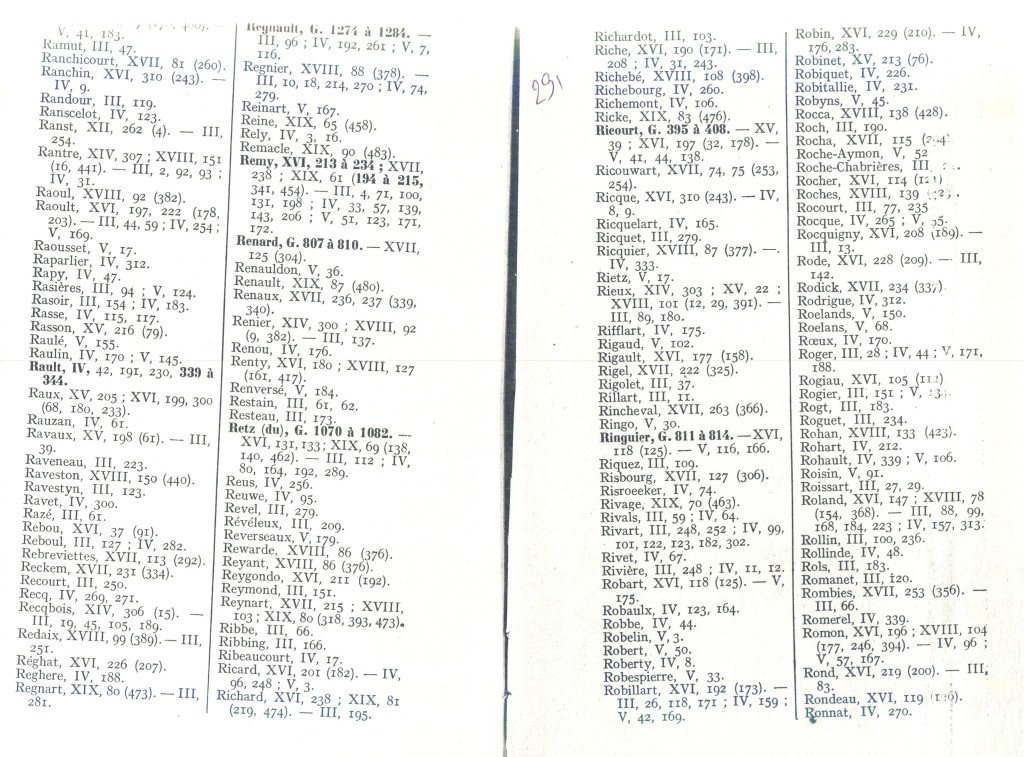 V, 41, 183.
Ramut, III, 47.
Ranchicourt, XVII, 81 (260).
Ranchin, XVI, 310 (243). —
IV, 9.
Randour, III, 119.
Ranscelot, IV, 123.
Ranst, XII, 262 (4). — III,
254.
Rantre, XIV, 307 ; XVIII, 151
(16, 441). — III, 2, 92, 93 ;
IV, 31.
Raoul, XVIII, 92 (382).
Raoult, XVI, 197, 222 (178,
203). — III, 44, 59 ; IV, 254 ;
V, 169.
Raousset, V, 17.
Raparlier, IV, 312.
Rapy, IV, 47.
Rasières, III, 94 ; V, 124.
Rasoir, III, 154 ; IV, 183.
Rasse, IV, 115, 117.
Rasson, XV, 216 (79).
Raulé, V, 155.
Raulin, IV, 170 ; V, 145.
Rault, IV, 42, 191, 230, 339 à
344.
Raux, XV, 205 ; XVI, 199, 300
(68, 180, 233).
Rauzan, IV, 61.
Ravaux, XV, 198 (61). — III,
39.
Raveneau, III, 223.
Raveston, XVIII, 150 (440).
Ravestyn, III, 123.
Ravet, IV, 300.
Razé, III, 61.
Rebou, XVI, 37 (91).
Reboul, III, 127 ; IV, 282.
Rebreviettes, XVII, 113 (292).
Reckem, XVII, 231 (334).
Recourt, III, 250.
Recq, IV, 269, 271.
Recqbois, XIV, 306 (15). —
III, 19, 45, 105, 189.
Redaix, XVIII, 99 (389). — III,
251.
Réghat, XVI, 226 (207).
Reghere, IV, 188.
Regnart, XIX, 80 (473). — III,
281.
Regnault, G. 1274 à 1284. —
III, 96 ; IV, 192, 261 ; V, 7,
116.
Regnier, XVIII, 88 (378). —
III, 10, 18, 214, 270 ; IV, 74,
279.
Reinart, V, 167.
Reine, XIX, 65 (458).
Rely, IV, 3, 16.
Remacle, XIX, 90 (483).
Remy, XVI, 213 à 234 ; XVII,
238 ; XIX, 61 (194 à 215,
341, 454). — III, 4, 71, 100,
131, 198 ; IV, 33, 57, 139,
143, 206 ; V, 51, 123, 171,
172.
Renard, G. 807 à 810. — XVII,
125 (304).
Renauldon, V, 36.
Renault, XIX, 87 (480).
Renaux, XVII, 236, 237 (339,
340).
Renier, XIV, 300 ; XVIII, 92
(9, 382). — III, 137.
Renou, IV, 176.
Renty, XVI, 180 ; XVIII, 127
(161, 417).
Renversé, V, 184.
Restain, III, 61, 62.
Resteau, III, 173.
Retz (du), G. 1070 à 1082. —
XVI, 131, 133 ; XIX, 69 (138,
140, 462). — III, 112 ; IV,
80, 164, 192, 289.
Reus, IV, 256.
Reuwe, IV, 95.
Revel, III, 279.
Révéleux, III, 209.
Reverseaux, V, 179.
Rewarde, XVIII, 86 (376).
Reyant, XVIII, 86 (376).
Reygondo, XVI, 211 (192).
Reymond, III, 151.
Reynart, XVII, 215 ; XVIII,
103 ; XIX, 80 (318, 393, 473).
Ribbe, III, 66.
Ribbing, III, 166.
Ribeaucourt, IV, 17.
Ricard, XVI, 201 (182). — IV,
96, 248 ; V, 3.
Richard, XVI, 238 ; XIX, 81
(219, 474). — III, 195.
291
Richardot, III, 103.
Riche, XVI, 190 (171). — III,
208 ; IV, 31, 243.
Richebé, XVIII, 108 (398).
Richebourg, IV, 260.
Richemont, IV, 106.
Ricke, XIX, 83 (476).
Ricourt, G. 395 à 408. — XV,
39 ; XVI, 197 (32, 178). —
V, 41, 44, 138.
Ricouwart, XVII, 74, 75 (253,
254).
Ricque, XVI, 310 (243). — IV,
8, 9.
Ricquelart, IV, 165.
Ricquet, III, 279.
Ricquier, XVIII, 87 (377). —
IV, 333.
Rietz, V, 17.
Rieux, XIV, 303 ; XV, 22 ;
XVIII, 101 (12, 29, 391). —
III, 89, 180.
Rifflart, IV, 175.
Rigaud, V, 102.
Rigault, XVI, 177 (158).
Rigel, XVII, 222 (325).
Rigolet, III, 37.
Rillart, III, 11.
Rincheval, XVII, 263 (366).
Ringo, V, 30.
Ringuier, G. 811 à 814. — XVI,
118 (125). — V, 116, 166.
Riquez, III, 109.
Risbourg, XVII, 127 (306).
Risroeeker, IV, 74.
Rivage, XIX, 70 (463).
Rivals, III, 59 ; IV, 64.
Rivart, III, 248, 252 ; IV, 99,
101, 122, 123, 182, 302.
Rivet, IV, 67.
Rivière, III, 248 ; IV, 11, 12.
Robart, XVI, 118 (125). — V,
175.
Robaulx, IV, 123, 164.
Robbe, IV, 44.
Robelin, V, 3.
Robert, V, 50.
Roberty, IV, 8.
Robespierre, V, 33.
Robillart, XVI, 192 (173). —
III, 26, 118, 171 ; IV, 159 ;
V, 42, 169.
Robin, XVI, 229 (210). — IV,
176, 283.
Robinet, XV, 213 (76).
Robiquet, IV, 226.
Robitallie, IV, 231.
Robyns, V, 45.
Rocca, XVIII, 138 (428).
Roch, III, 190.
Rocha, XVII, 115
Roche-Aymon, V, 52
Roche-Chabrières, III,
Rocher, XVI, 114
Roches, XVIII, 139
Rocourt, III, 77, 235
Rocque, IV, 265 ; V,
Rocquigny, XVI, 208 (189). —
III, 13.
Rode, XVI, 228 (209). — III,
142.
Rodick, XVII, 234 (337).
Rodrigue, IV, 312.
Roelands, V, 150.
Roelans, V, 68.
Rœux, IV, 170.
Roger, III, 28 ; IV, 44 ; V, 171,
188.
Rogiau, XVI, 105
Rogier, III, 151 ; V,
Rogt, III, 183.
Roguet, III, 234.
Rohan, XVIII, 133 (423).
Rohart, IV, 212.
Rohault, IV, 339 ; V, 106.
Roisin, V, 91.
Roissart, III, 27, 29.
Roland, XVI, 147 ; XVIII, 78
(154, 368). — III, 88, 99,
168, 184, 223 ; IV, 157, 313.
Rollin, III, 100, 236.
Rollinde, IV, 48.
Rols, III, 183.
Romanet, III, 120.
Rombies, XVII, 253 (356). —
III, 66.
Romerel, IV, 339.
Romon, XVI, 196 ; XVIII, 104
(177, 246, 394). — IV, 96 ;
V, 57, 167.
Rond, XVI, 219 (200). — III,
83.
Rondeau, XVI, 119
Ronnat, IV, 270.